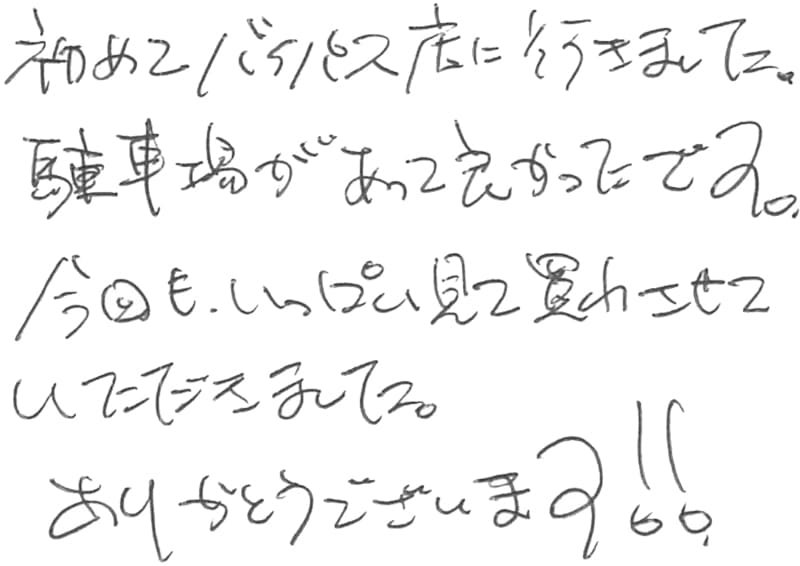 初めてバイパス店に行きました。
駐車場があって良かったです。
今回も、いっぱい見て買わせて
いただきました。
ありがとうございます!!